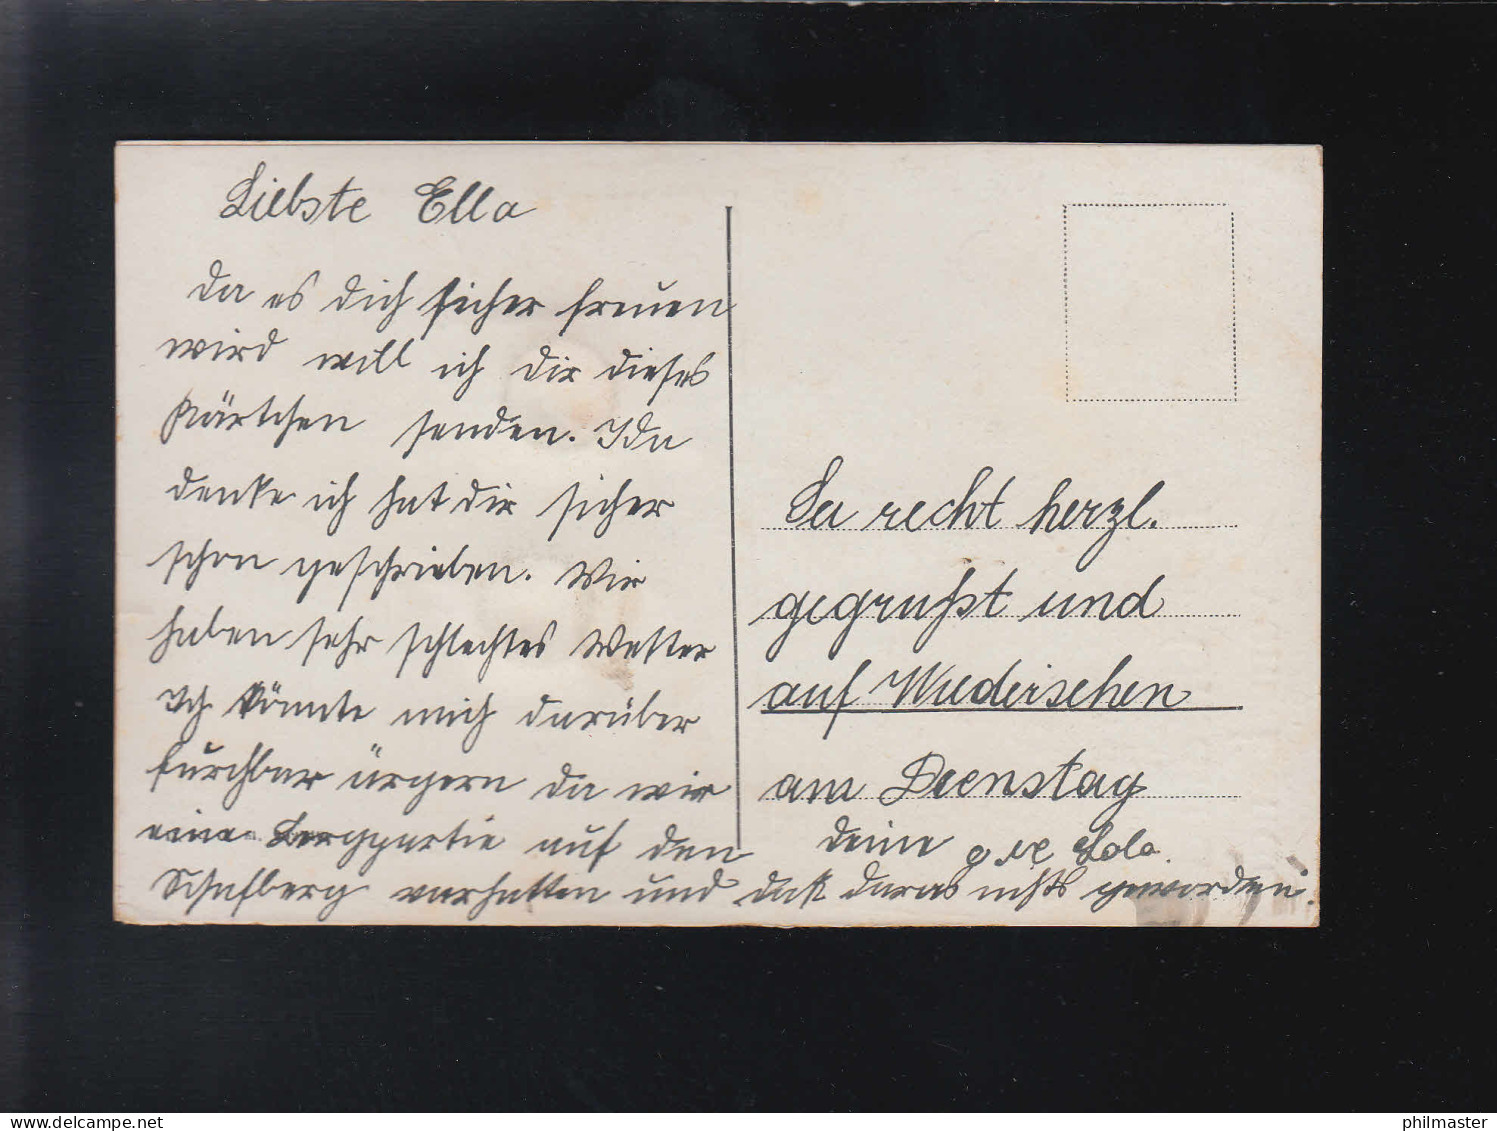 Liebste Ella
Da es dich sicher freuen
wird will ich dir dieses
Kärtchen senden. Ida
denke ich hat dir sicher
schon geschrieben. Wir
haben sehr schlechtes Wetter
Ich könnte mich darüber
furchbar ärgern da wir
eine Bergpartie auf den
Schafberg vorhatten und daß daraus nichts geworden.
Sei recht herzl.
gegrußt und
auf Wiedersehen
am Dienstag
deine Lola.
philmaster
www.delcampe.net